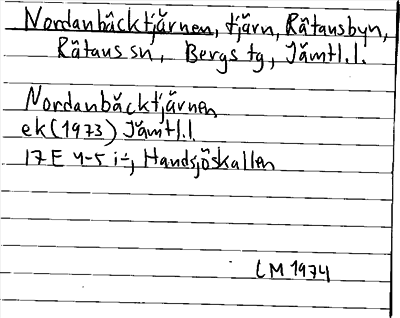 Nordanbäcktjärnen, tjärn, Rätansbyn,
Rätans sn, Bergs tg, Jämtl.l.
Nordanbäcktjärnen
ek (1973) Jämtl.l.
17E 4-5 i-, Handsjöskallen
LM 1974